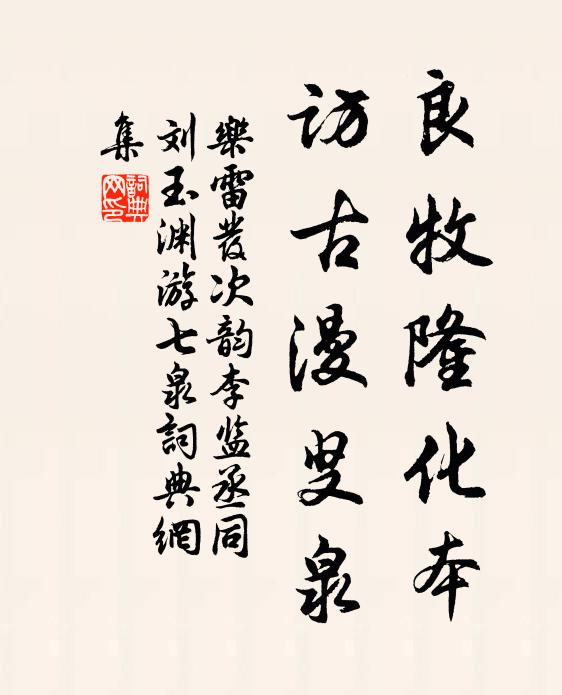 良牧隆化本
访古漫叟泉
樂雷發次韵李监丞同
刘玉渊游七泉詞典網
集
詞典网印